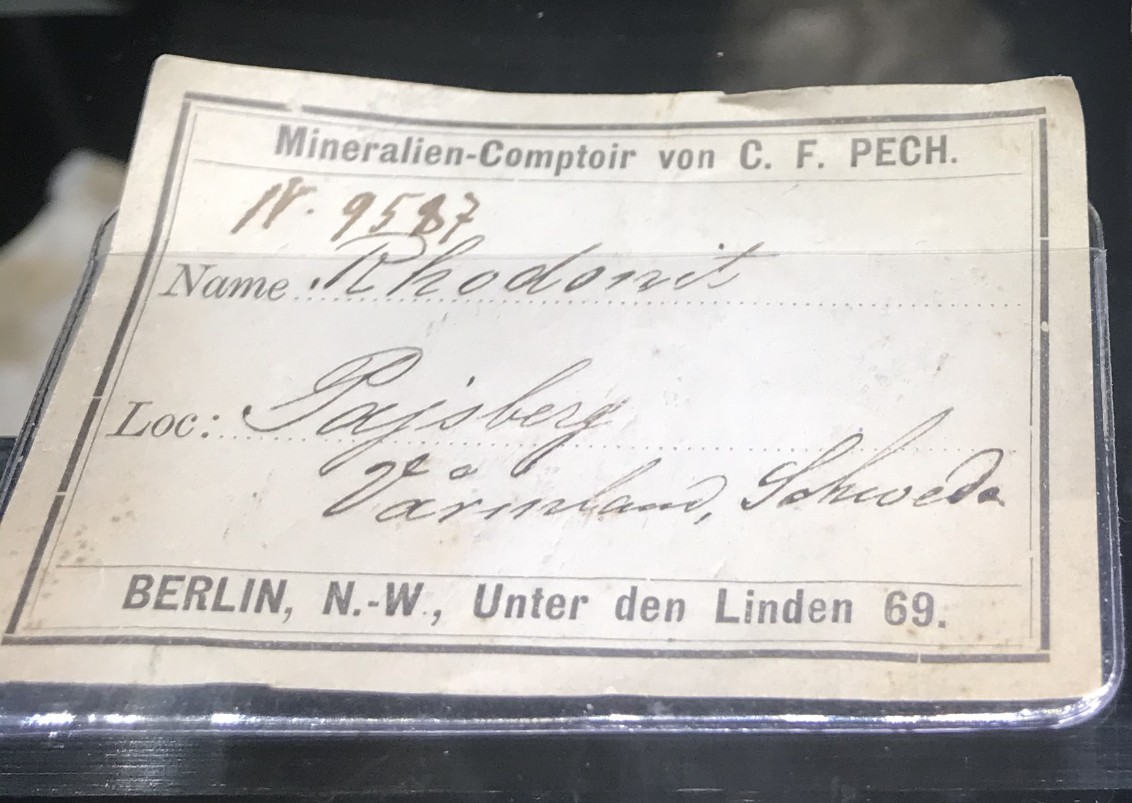 Mineralien-Comptoir von C. F. PECH.
N. 9587
Name Rhodonit
Loc: Pajsberg
Värmland, Schwed
BERLIN, N.-W., Unter den Linden 69.